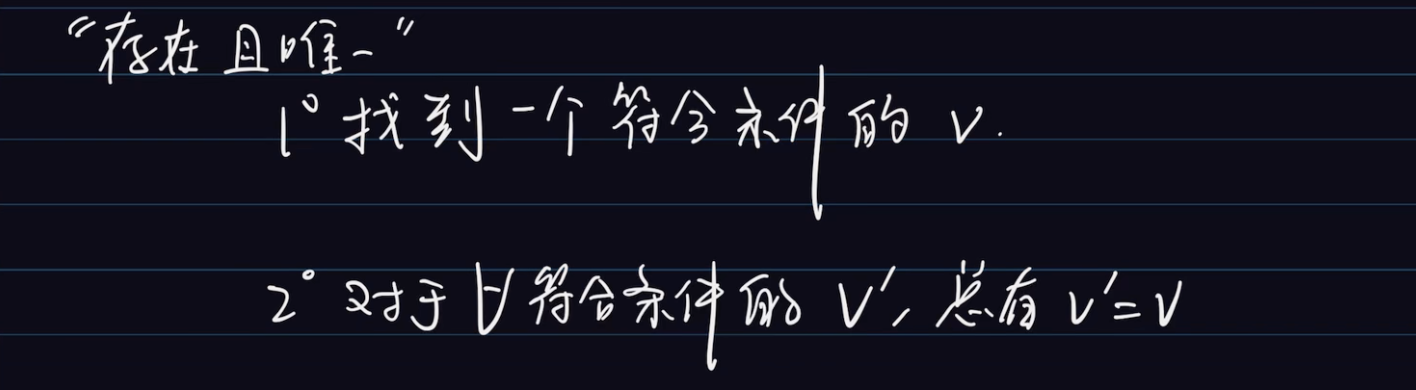 “存在且唯一”
1° 找到一个符合条件的 v.
2° 对于 ∀ 符合条件的 v′, 总有 v′=v